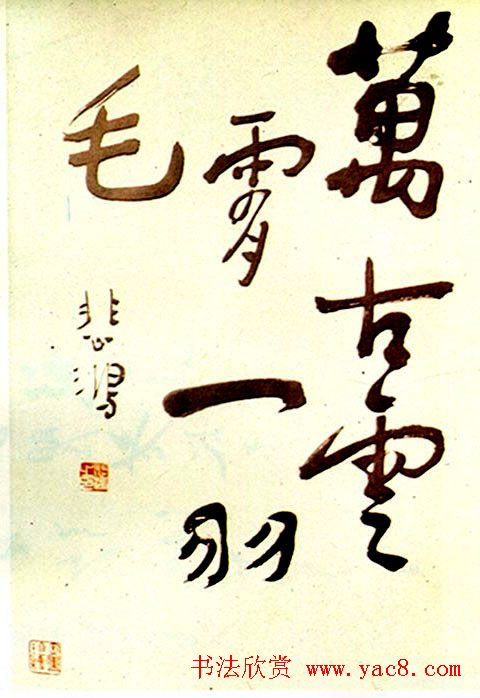 萬古雲
霄一羽
毛
悲鴻
书法欣赏 www.yac8.com